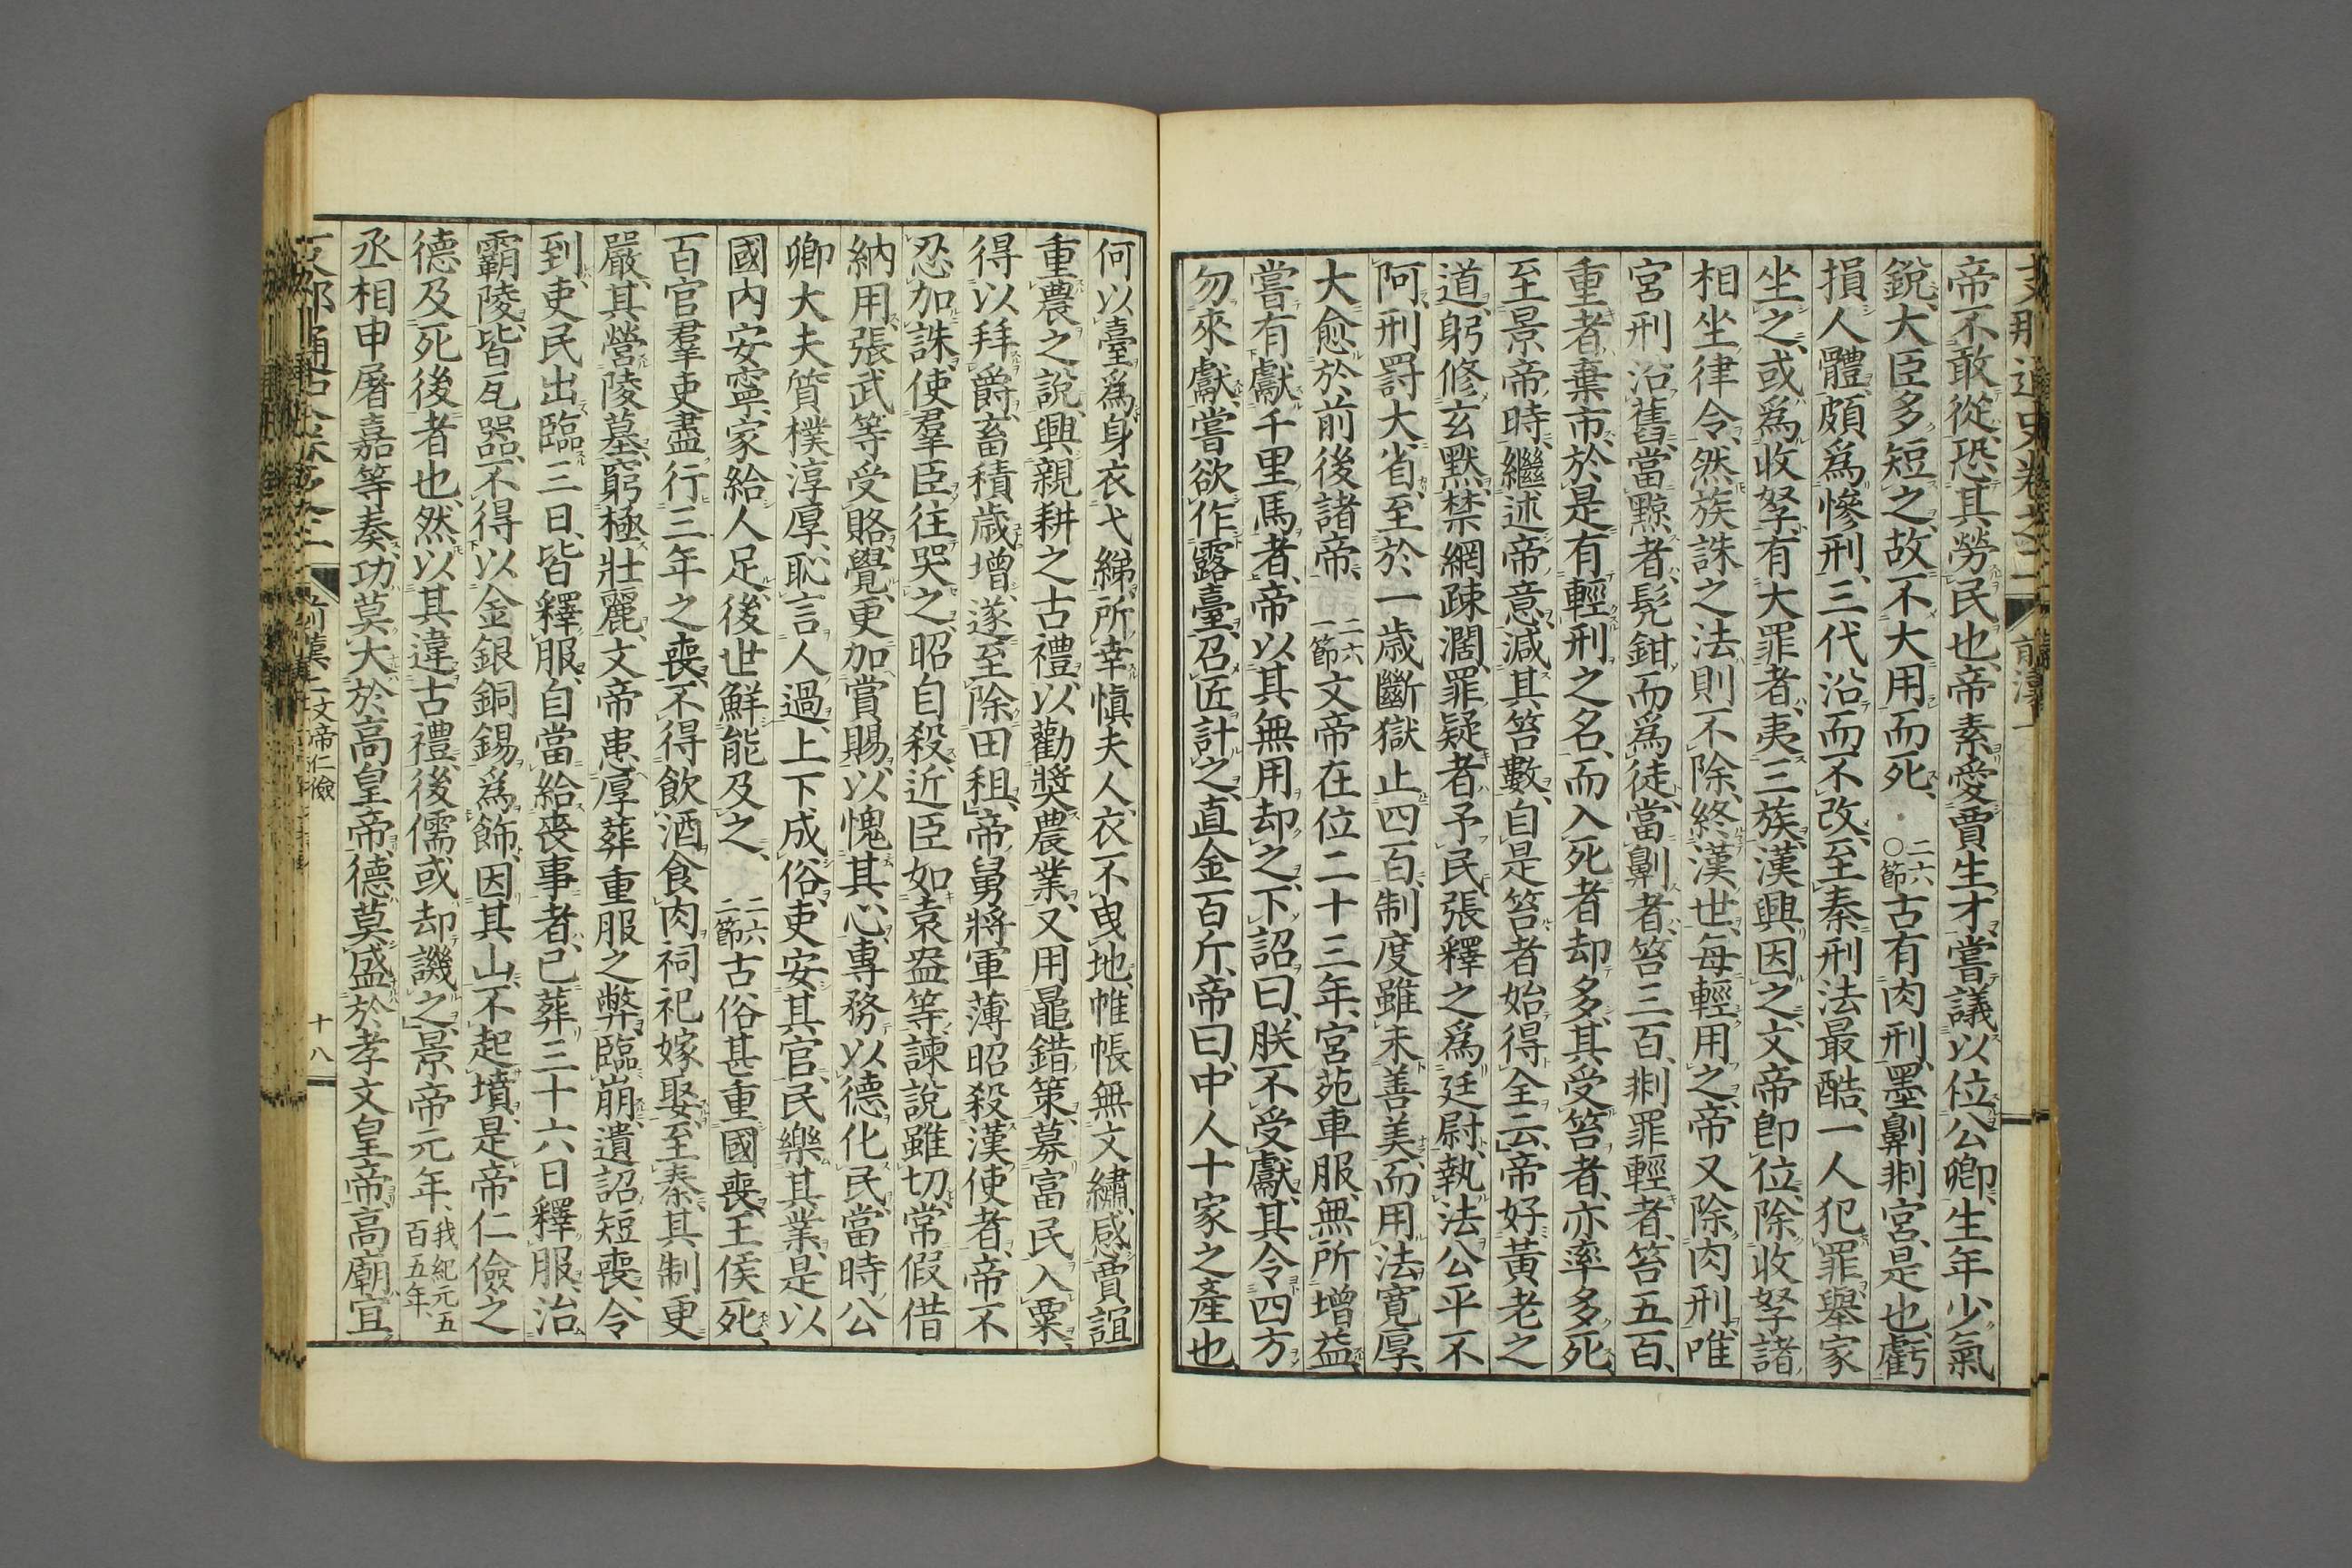 支那通史卷之二 前漢二
帝不敢從、恐其勞民也、帝素愛賈生才、嘗議以位公卿、生年少氣
銳、大臣多短之、故不大用而死、 二六〇節 古有肉刑、墨劓剕宮、是也、虧
損人體、頗爲慘刑、三代沿而不改、至秦刑法最酷、一人犯罪、舉家
坐之、或爲收孥、有大罪者、夷三族、漢興因之、文帝卽位、除收孥諸
相坐律令、然族誅之法、則不除、終漢世、每輕用之、帝又除肉刑、唯
宮刑沿舊、當黥者、髡鉗而爲徒、當劓者、笞三百、剕罪輕者、笞五百、
重者棄市、於是有輕刑之名、而入死者却多、其受笞者、亦率多死、
至景帝時、繼述帝意、減其笞數、自是笞者始得全云、帝好黃老之
道、躬修玄默、禁網疎濶、罪疑者予民、張釋之爲廷尉、執法公平不
阿、刑罰大省、至於一歲斷獄止四百、制度雖未善美、而用法寬厚、
大愈於前後諸帝、 二六一節 文帝在位二十三年、宮苑車服、無所增益、
嘗有獻千里馬者、帝以其無用却之、下詔曰、朕不受獻、其令四方
勿來獻、嘗欲作露臺、召匠計之、直金百斤、帝曰、中人十家之產也、
何以臺爲、身衣弋綈、所幸愼夫人、衣不曳地、帷帳無文繡、感賈誼
重農之說、興親耕之古禮、以勸獎農業、又用鼂錯策、募富民入粟、
得以拜爵、畜積歲增、遂至除田租、帝舅將軍薄昭殺漢使者、帝不
忍加誅、使羣臣往哭之、昭自殺、近臣如袁盎等、諫說雖切、常假借
納用、張武等受賂、覺、更加賞賜、以愧其心、專務以德化民、當時公
卿大夫、質樸淳厚、恥言人過、上下成俗、吏安其官、民樂其業、是以
國內安寧、家給人足、後世鮮能及之、 二六二節 古俗甚重國喪、王侯死、
百官羣吏盡行三年之喪、不得飮酒食肉祠祀嫁娶、至秦其制更
嚴、其營陵墓、窮極壯麗、文帝患厚葬重服之弊、臨崩、遺詔短喪、令
到、吏民出臨三日、皆釋服、自當給喪事者、已葬三十六日釋服、治
霸陵、皆瓦器、不得以金銀銅錫爲飾、因其山、不起墳、是帝仁儉之
德、及死後者也、然以其違古禮、後儒或却譏之、景帝元年、我紀元五百五年、
丞相申屠嘉等奏、功莫大於高皇帝、德莫盛於孝文皇帝、高廟宜
支那通史卷之二 前漢二 文帝仁儉 十八